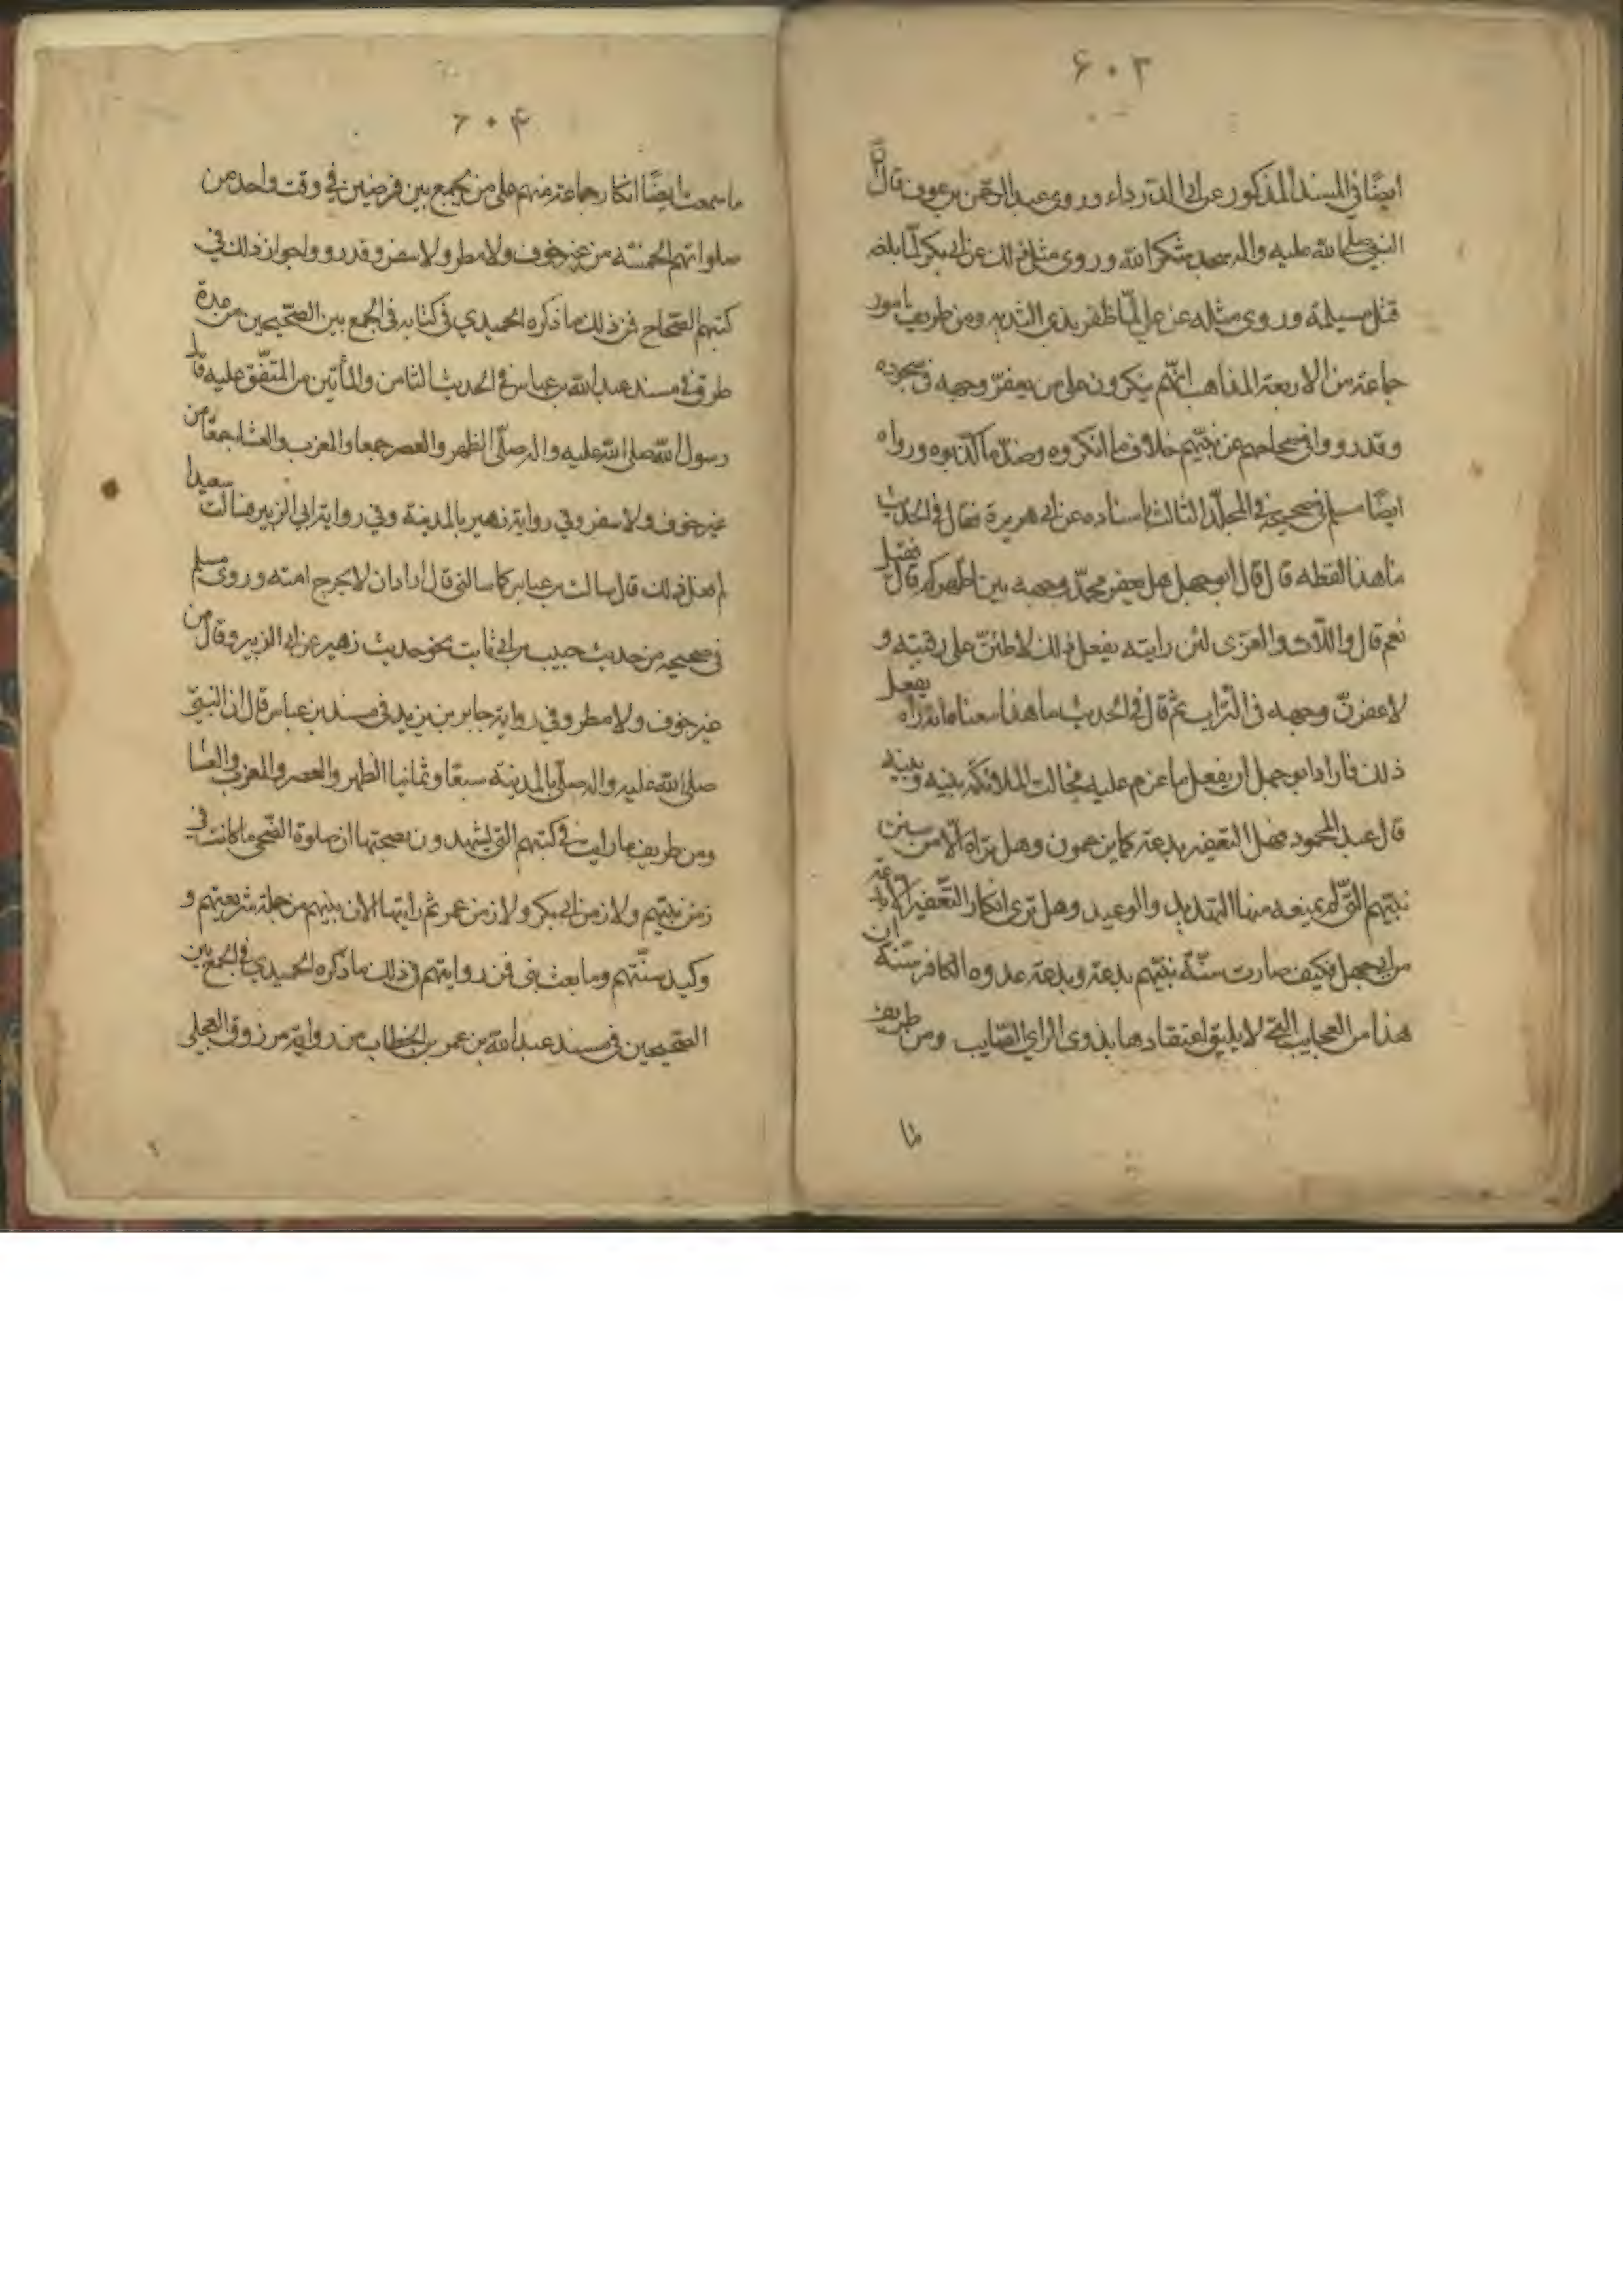 ۶۰۳
ايضا في المسند المذكور عن ابي الدرداء وروى عبد الرحمن بن عوف قال ان
النبي صلى الله عليه واله سجد شكرا لله وروى مثل ذلك عن ابي بكر لما بلغه
قتل مسيلمة وروى مثله عن علي لما ظفر بذي الثديه ومن طريف امور
جماعة من الاربعة المذاهب انهم ينكرون على من يعفر وجهه في سجوده
وقد رووا في صحاحهم عن نبيهم خلاف ما انكروه وضد ما كذبوه ورواه
ايضا مسلم في صحيحه في المجلد الثالث باسناده عن ابي هريرة فقال في الحديث
ما هذا لفظه قال قال ابو جهل هل يعفر محمد وجهه بين اظهركم قال فقيل
نعم قال واللات والعزى لئن رايته يفعل ذلك لاطئن على رقبته و
لاعفرن وجهه في التراب ثم قال في الحديث ما هذا معناه انه راه يفعل
ذلك فاراد ابو جهل ان يفعل ما عزم عليه فحالت الملائكة بينه وبينه
قال عبد المحمود فهل التعفير بدعة كما يزعمون وهل تراه الا من سنن
نبيهم التي لم يمنعه منها التهديد والوعيد وهل ترى انكار التعفير الا بدعة
من ابي جهل فكيف صارت سنة نبيهم بدعة وبدعة عدوه الكافر سنة ان
هذا من العجايب التي لا يليق اعتقادها بذوي الراي الصايب ومن طريف
ما
۶۰۴
ما سمعت ايضا انكار جماعة منهم على من يجمع بين فرضين في وقت واحد من
صلواتهم الخمسة من غير خوف ولا مطر ولا سفر وقد رووا جواز ذلك في
كتبهم الصحاح فمن ذلك ما ذكره الحميدي في كتابه في الجمع بين الصحيحين من عدة
طرق في مسند عبد الله بن عباس في الحديث الثامن والمأتين من المتفق عليه قال
رسول الله صلى الله عليه واله صلى الظهر والعصر جمعا والمغرب والعشا جمعا من
غير خوف ولا سفر وفي رواية زهير بالمدينة وفي رواية ابي الزبير فسالت سعيدا
لم فعل ذلك قال سالت بن عباس كما سالتني قال اراد ان لا يحرج امته وروى مسلم
في صحيحه من حديث حبيب بن ابي ثابت نحو حديث زهير عن ابي الزبير وقال من
غير خوف ولا مطر وفي رواية جابر بن يزيد في مسند بن عباس قال ان النبي
صلى الله عليه واله صلى بالمدينة سبعا وثمانيا الظهر والعصر والمغرب والعشا
ومن طريف ما رايت في كتبهم التي يشهدون بصحتها ان صلوة الضحى ما كانت في
زمن نبيهم ولا زمن ابي بكر ولا زمن عمر ثم رايتها الان بينهم من جملة شريعتهم و
وكيد سنتهم وما بعث نبي فمن روايتهم في ذلك ما ذكره الحميدي في الجمع بين
الصحيحين في مسند عبد الله بن عمر بن الخطاب من رواية مرزوق العجلي